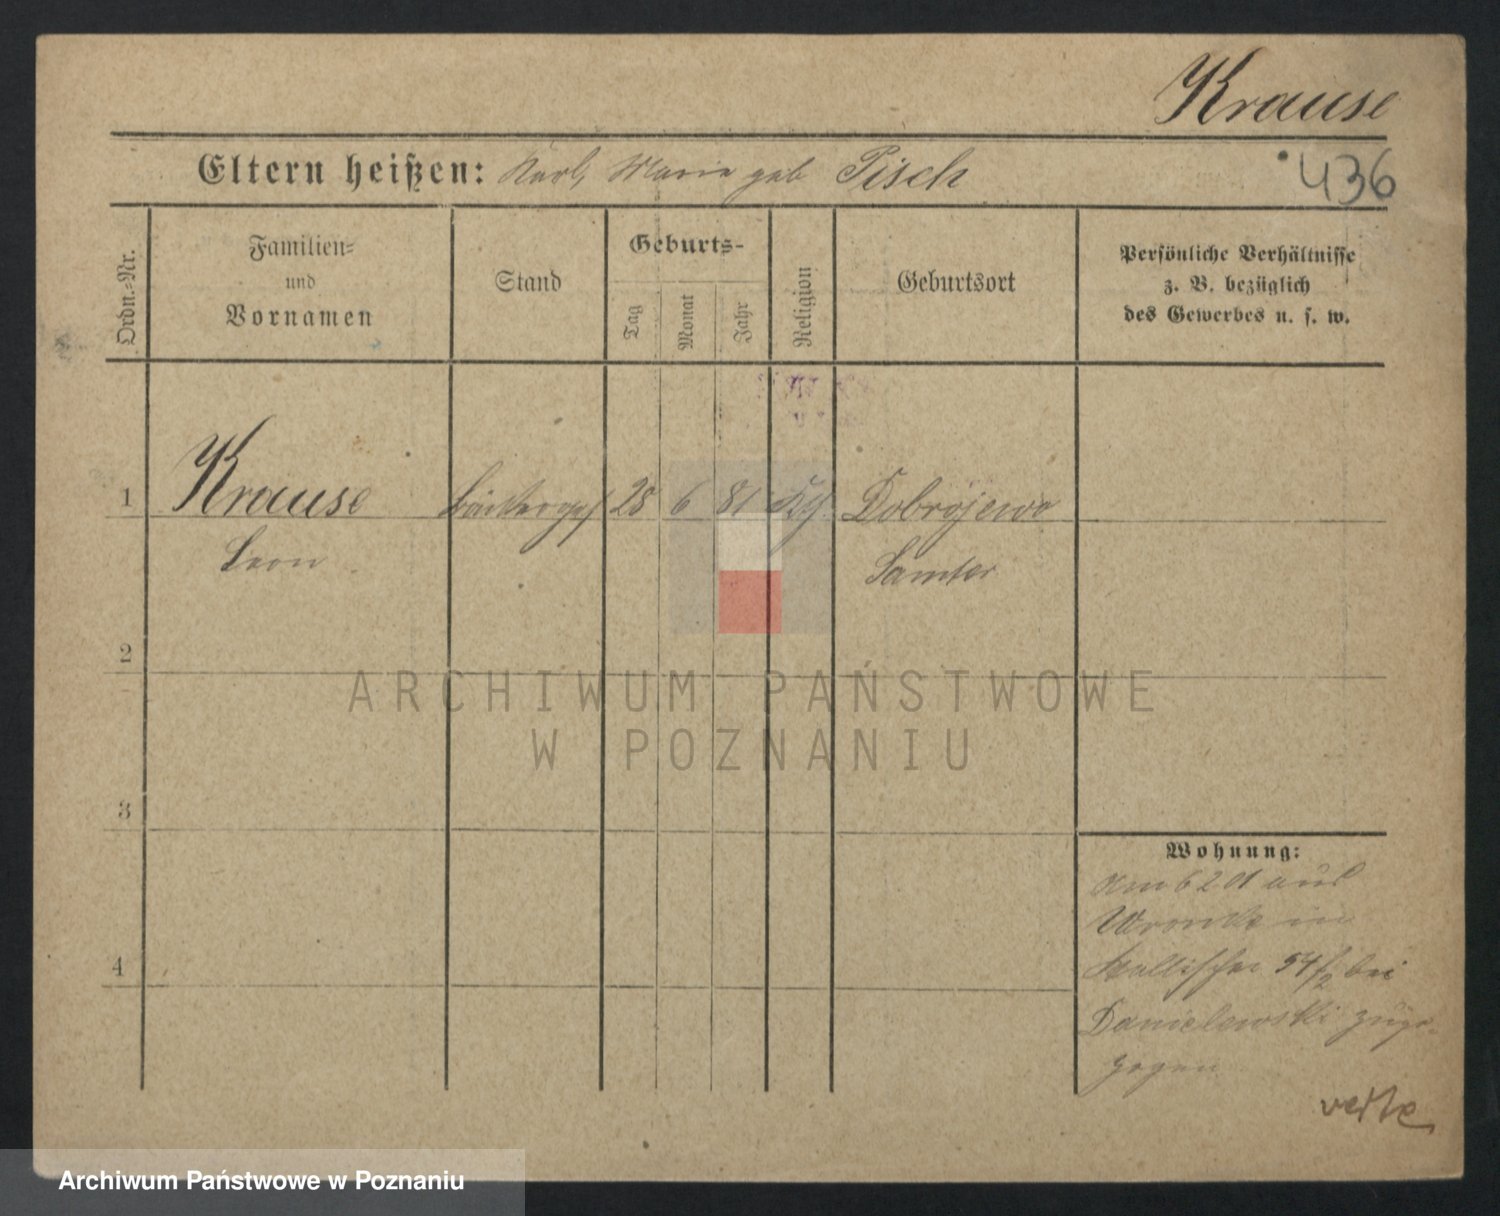 Krause
436
Eltern heißen: Karl, Marie geb Pisch
Ordn.-Nr.
Familien-
und
Vornamen
Stand
Geburts-
Tag
Monat
Jahr
Religion
Geburtsort
Persönliche Verhältnisse
z. B. bezüglich
des Gewerbes u. s. w.
1 Krause Bäckerges 28 6 81 Dobrojewo
Leon Samter
2
ARCHIWUM PAŃSTWOWE
W POZNANIU
3
4
Wohnung:
Am 6 2 01 aus
Wronke in
54/2 bei
Danielewski zuge-
zogen
verte
Archiwum Państwowe w Poznaniu